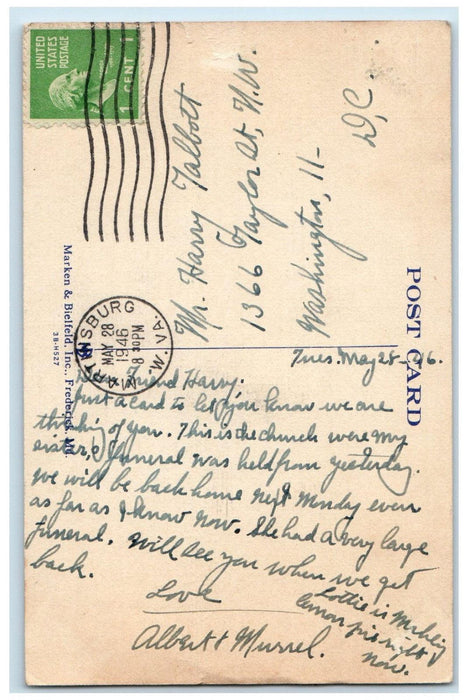 UNITED
STATES
POSTAGE
1 CENT 1
MARTINSBURG
MAY 28
8 30 PM
1946
W. VA.
Marken & Bielfeld, Inc., Frederick, Md.
3B-H527
POST CARD
Mr. Harry Talbott
1366 Taylor St, N.W.
Washington, 11-
D,C.
Tues. May 28-46.
Friend Harry.
Just a card to let you know we are
thinking of you. This is the church were my
sister,s funeral was held from yesterday.
We will be back home next Monday even
as far as I know now. She had a very large
funeral. Will see you when we get
back.
Love
Albert & Murrel.
Lottie is making
lemon pie right
now.